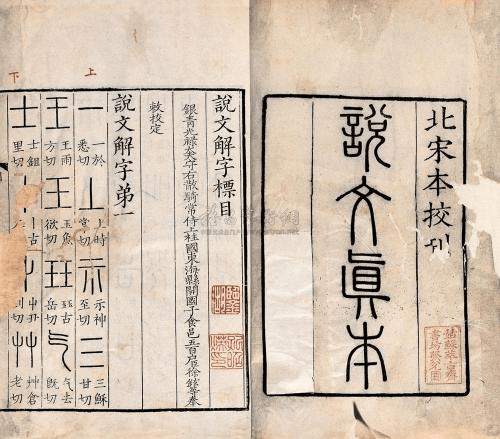 北宋本校刊
說文真本
說文解字標目
銀青光祿大夫守右散騎常侍上柱國東海縣開國子食邑五百戶臣徐鉉等奉
敕校定
說文解字弟一
上
一 一於悉切
丄 上時掌切
示 示神至切
三 三穌甘切
王 王雨方切
玉 玉魚欲切
玨 玨古岳切
气 气去旣切
下
士 士鉏里切
丨 丨古
屮 屮丑
艸 艸倉老切